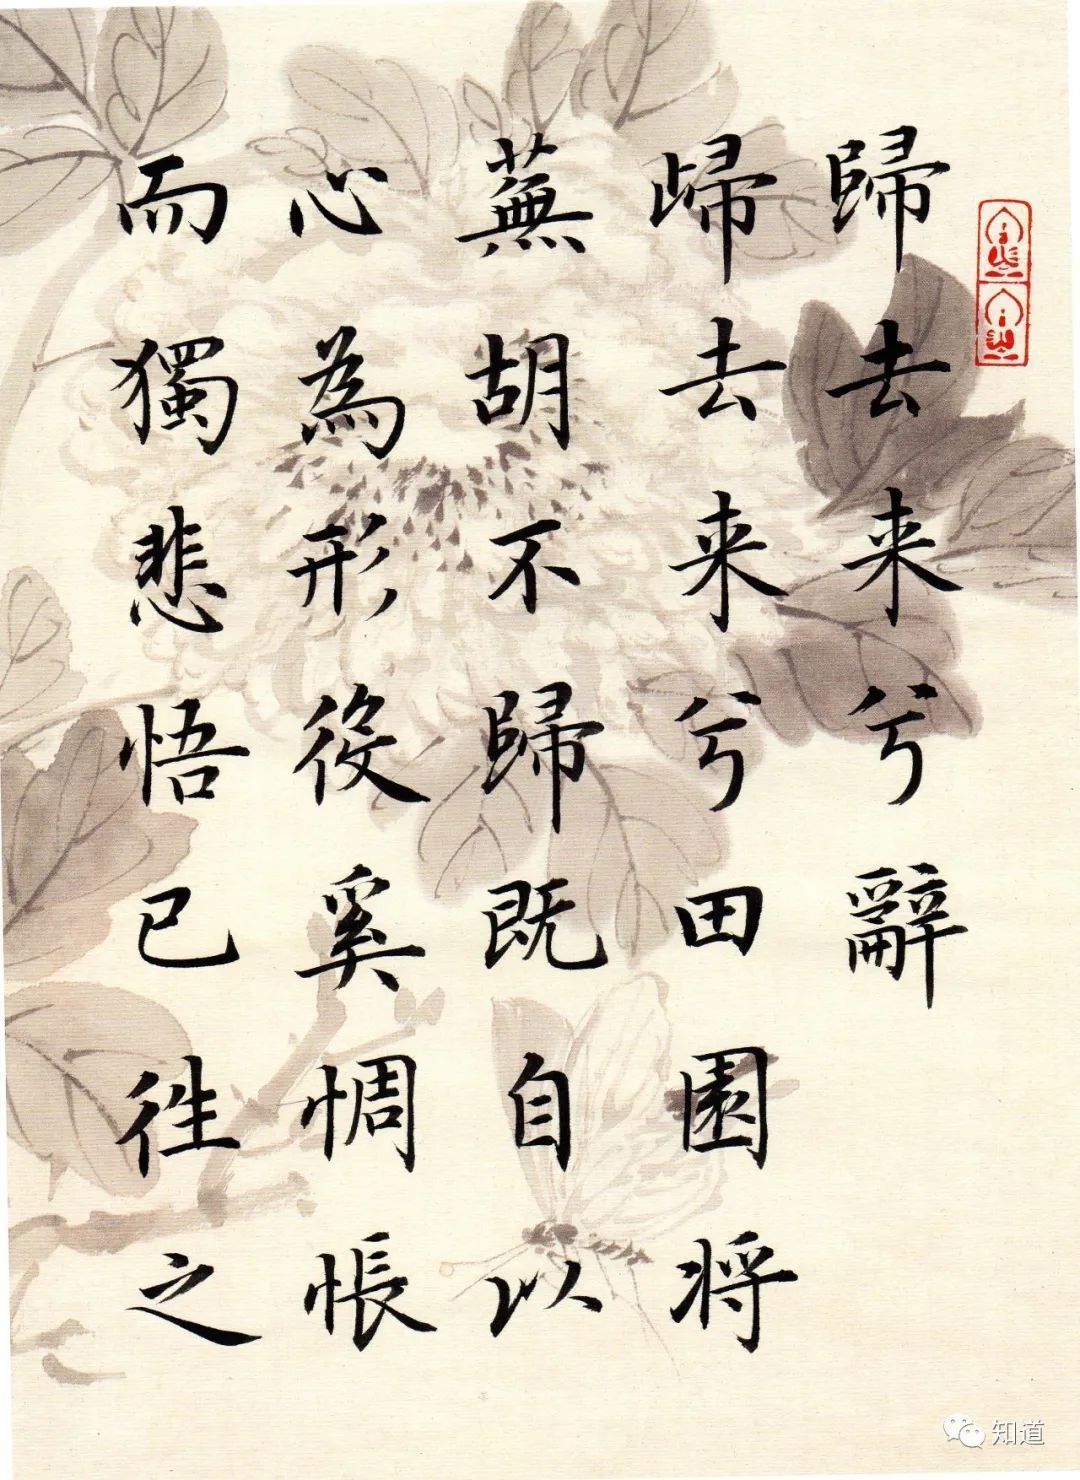 歸去来兮辭
歸去来兮田園将
蕪胡不歸既自以
心為形役奚惆悵
而獨悲悟已往之
知道